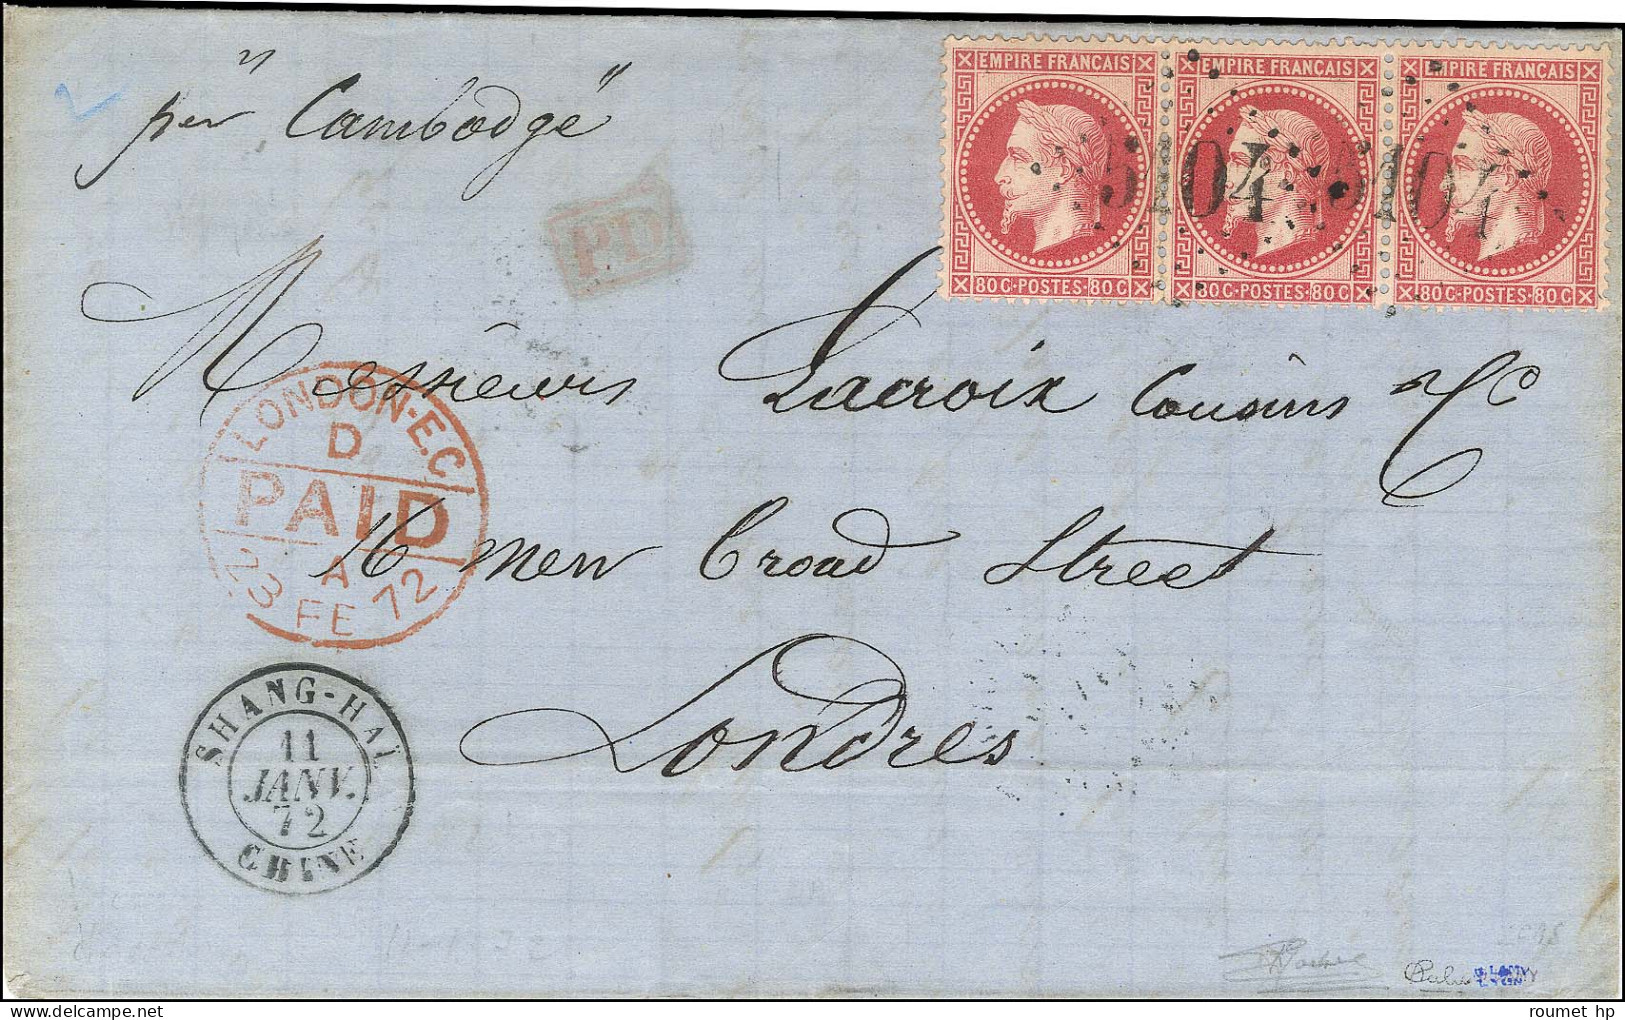 per "Cambodge"
EMPIRE FRANÇAIS
80 C·POSTES·80 C
EMPIRE FRANÇAIS
80 C·POSTES·80 C
EMPIRE FRANÇAIS
80 C·POSTES·80 C
5104
5104
PD
Messieurs Lacroix Cousins & Co
16 new Broad Street
Londres
LONDON-E.C
D
PAID
A
23 FE 72
SHANG-HAÏ
11
JANV.
72
CHINE
roumet hp